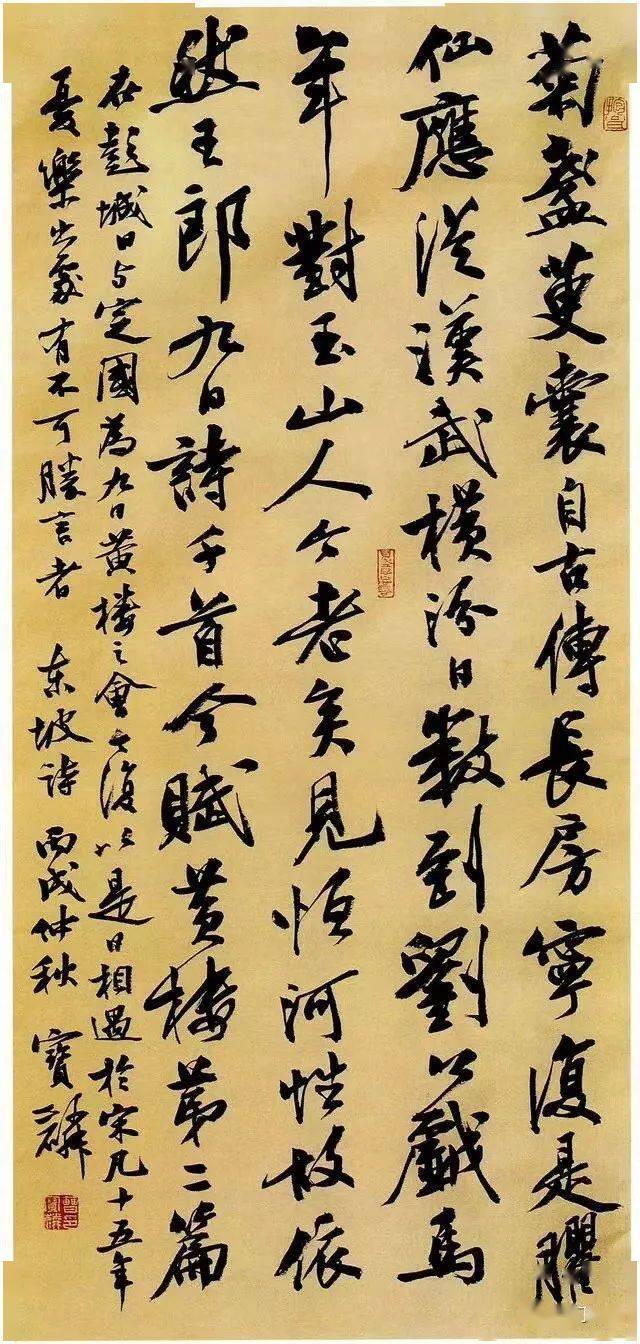 菊盞萸囊自古傳長房寧復是臞
仙應從漢武橫汾日數到劉公戲馬
年對玉山人今老矣見恒河性故依
然王郎九日詩千首今賦黃樓第二篇
在彭城日与定國為九日黃樓之會今復以是日相遇於宋凡十五年
憂樂出處有不可勝言者 東坡詩 丙戌仲秋 寶麟